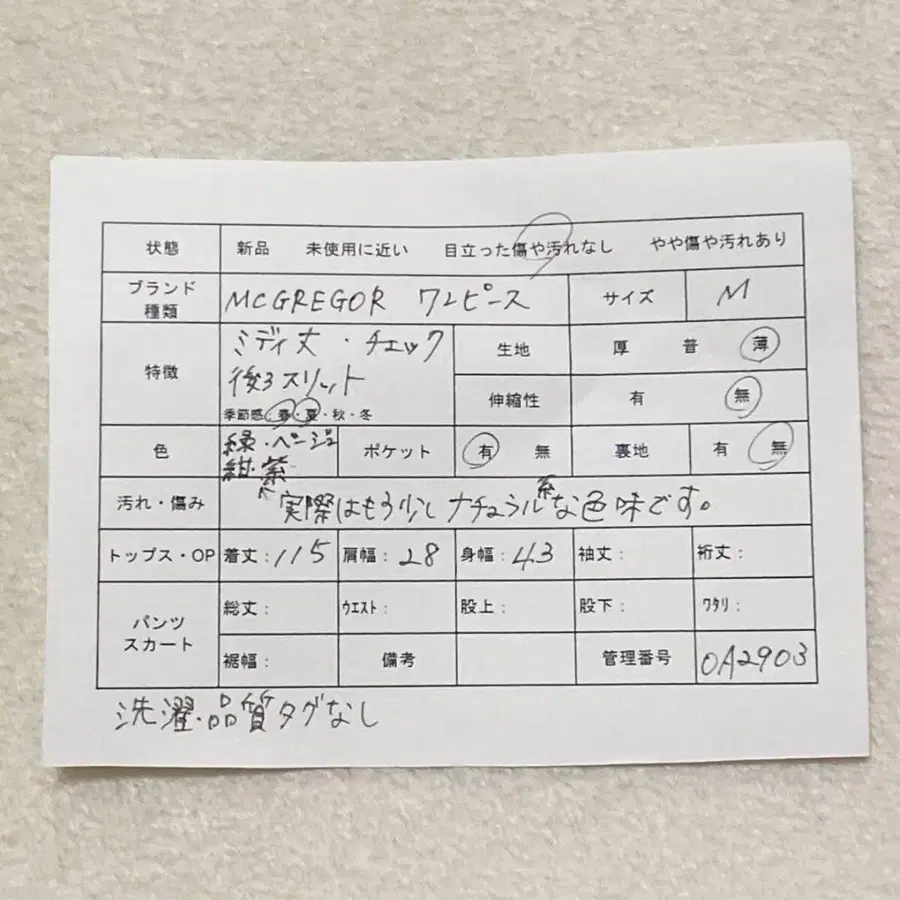 状態 新品 未使用に近い 目立った傷や汚れなし やや傷や汚れあり
ブランド種類 MCGREGOR ワンピース サイズ M
特徴 ミディ丈・チェック 生地 厚 普 薄
後ろスリット 伸縮性 有 無
季節感:春・夏・秋・冬
色 緑・ベージュ ポケット 有 無 裏地 有 無
紺・紫
汚れ・傷み 実際はもう少しナチュラル系な色味です。
トップス・OP 着丈:115 肩幅:28 身幅:43 袖丈: 裄丈:
パンツスカート 総丈: ウエスト: 股上: 股下: ワタリ:
裾幅: 備考 管理番号 OA2903
洗濯・品質タグなし